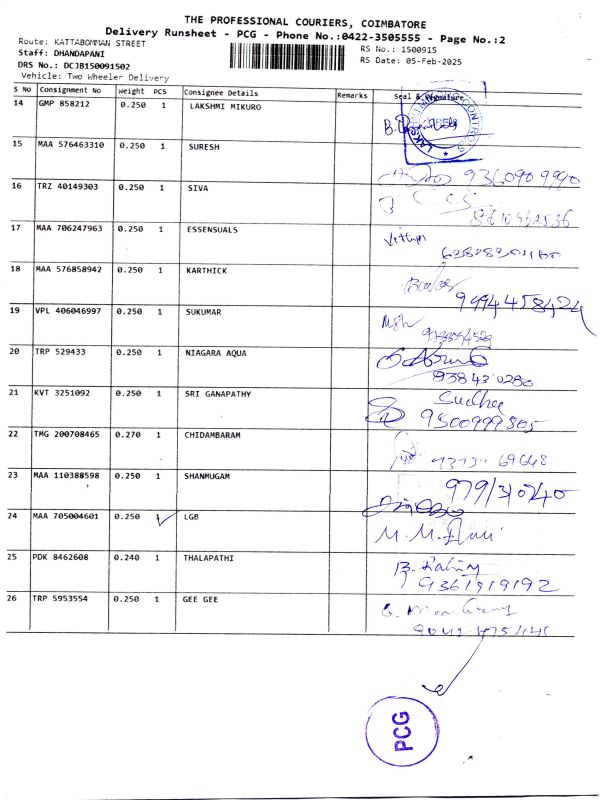 THE PROFESSIONAL COURIERS, COIMBATORE
Delivery Runsheet - PCG - Phone No.:0422-3505555 - Page No.:2
Route: KATTABOMMAN STREET
Staff: DHANDAPANI
DRS No.: DCJB150091502
Vehicle: Two Wheeler Delivery
RS No.: 1500915
RS Date: 05-Feb-2025
S No Consignment No Weight PCS Consignee Details Remarks Seal & Signature
14 GMP 858212 0.250 1 LAKSHMI MIKURO
15 MAA 576463310 0.250 1 SURESH 9360909990
16 TRZ 40149303 0.250 1 SIVA
17 MAA 706247963 0.250 1 ESSENSUALS
18 MAA 576858942 0.250 1 KARTHICK 9994458424
19 VPL 406046997 0.250 1 SUKUMAR
20 TRP 529433 0.250 1 NIAGARA AQUA 9384310280
21 KVT 3251092 0.250 1 SRI GANAPATHY 9500999805
22 TMG 200708465 0.270 1 CHIDAMBARAM
23 MAA 110388598 0.250 1 SHANMUGAM
24 MAA 705004601 0.250 1 LGB
25 PDK 8462608 0.240 1 THALAPATHI 9361919192
26 TRP 5953554 0.250 1 GEE GEE
PCG